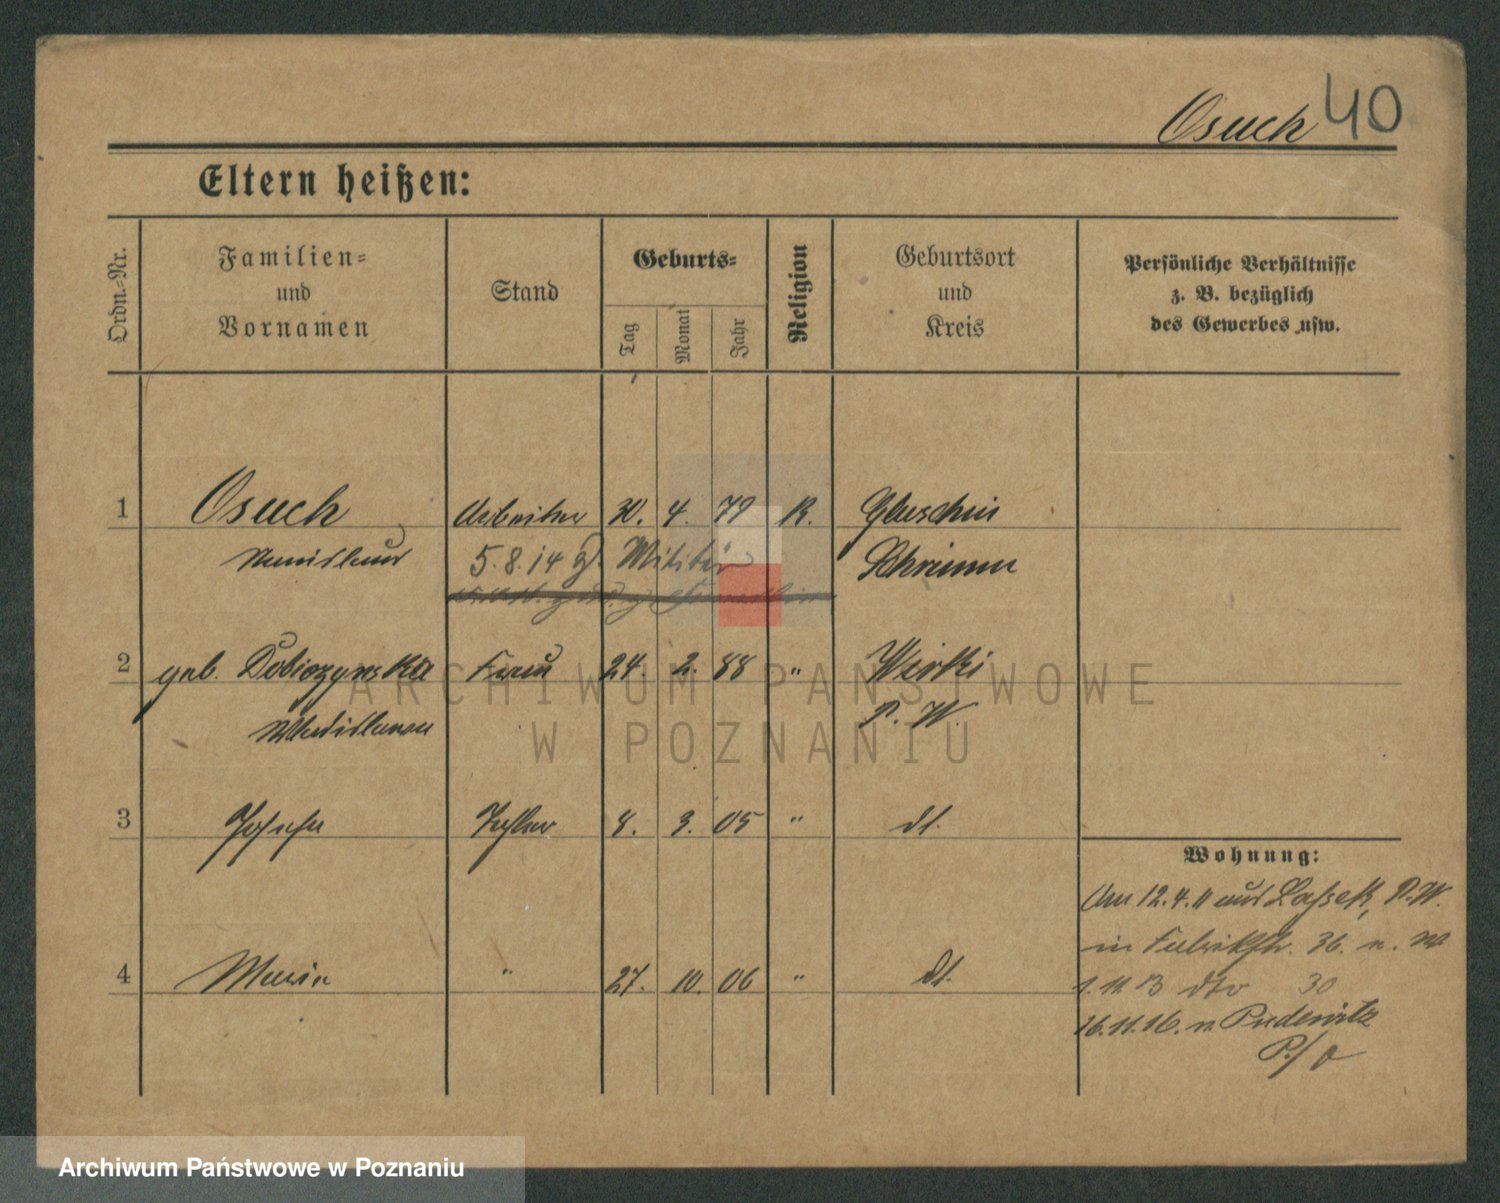 Osuch 40
Eltern heißen:
Ordn.=Nr.
Familien=
und
Vornamen
Stand
Geburts=
Tag
Monat
Jahr
Religion
Geburtsort
und
Kreis
Persönliche Verhältnisse
z. B. bezüglich
des Gewerbes usw.
1 Osuch Arbeiter 30. 4. 79 K. Gluschin
Stanislaus 5.8.14 z. Militär Schrimm
2 geb. Dobiczynska Frau 24. 2. 88 " Wirki
Wladislawa P. W.
3 Josefa Tochter 8. 3. 05 " dt.
Wohnung:
Am 12.4.11 aus Lassek, P.W.
in Fabrikstr. 36. n. W
4 Maria " 27. 10. 06 " dt.
1.11.13 dto 30
16.11.16. n. Pudewitz
P./O
ARCHIWUM PAŃSTWOWE
W POZNANIU
Archiwum Państwowe w Poznaniu